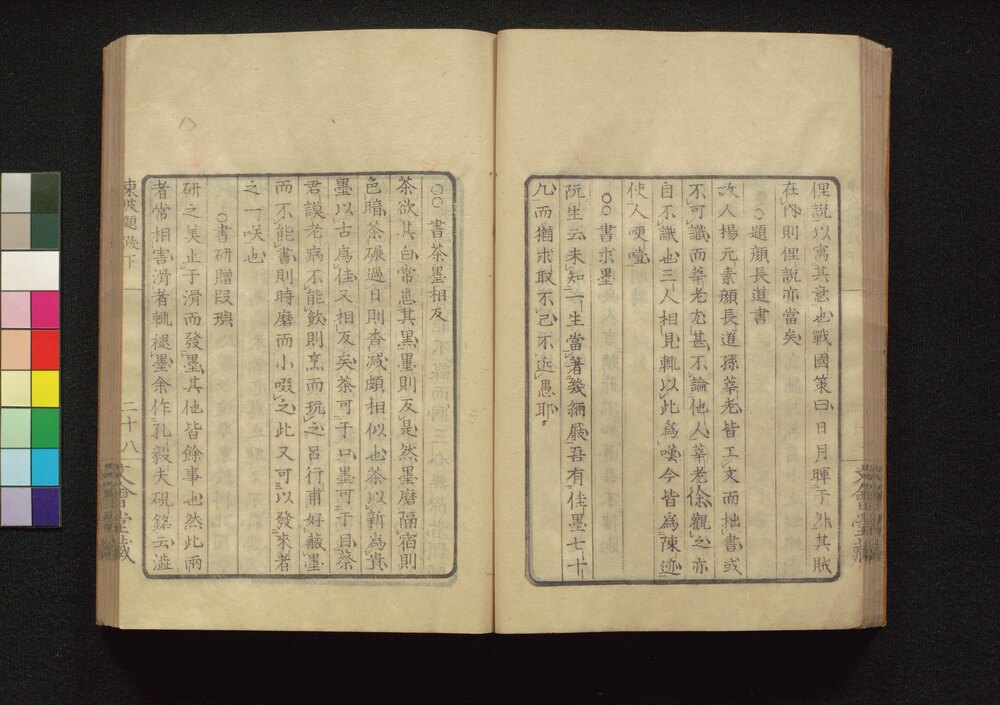 俚說以寓其意也戰國策曰日月暉于外其賊
在內則俚說亦當矣
○題顔長道書
故人揚元素顔長道孫莘老皆工文而拙書或
不可識而莘老尤甚不論他人莘老徐觀之亦
自不識也三人相見輒以此爲嘆今皆爲陳迹
使人哽噎
○○書求墨
阮生云未知一生當著幾緉屐吾有佳墨七十
九而猶求取不已不近愚耶
文會堂藏
○○書茶墨相反
茶欲其白常患其黑墨則反是然墨磨隔宿則
色暗茶碾過日則香減頗相似也茶以新爲貴
墨以古爲佳又相反矣茶可于口墨可于目蔡
君謨老病不能飲則烹而玩之呂行甫好藏墨
而不能書則時磨而小啜之此又可以發來者
之一咲也
○書研贈段璵
研之美止于滑而發墨其他皆餘事也然此兩
者常相害滑者輒褪墨余作孔毅夫硯銘云澁
東坡題跋下
二十八
文會堂藏